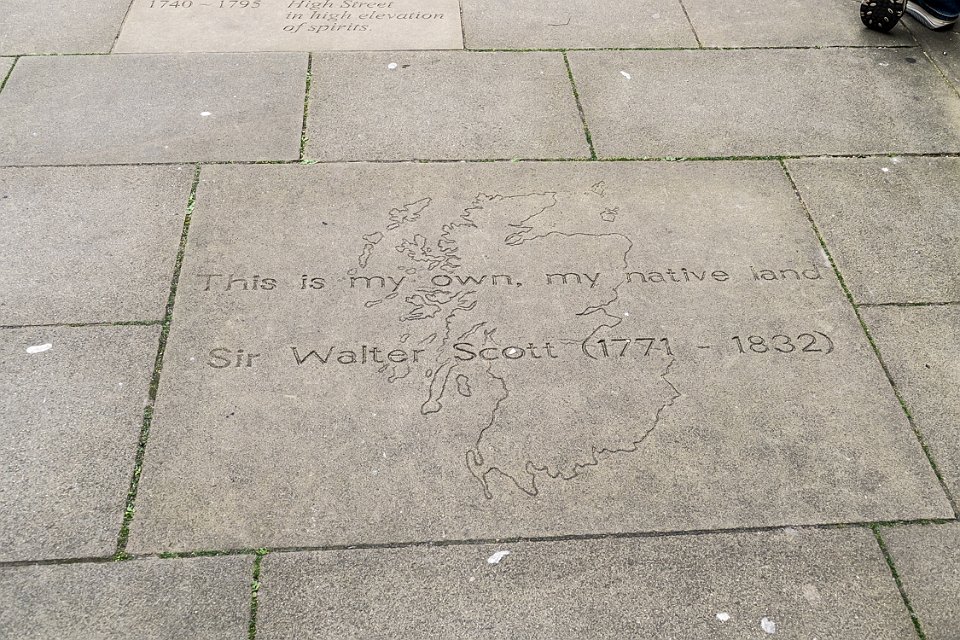 1740 ~ 1795 High Street
in high elevation
of spirits.
This is my own, my native land
Sir Walter Scott (1771 - 1832)